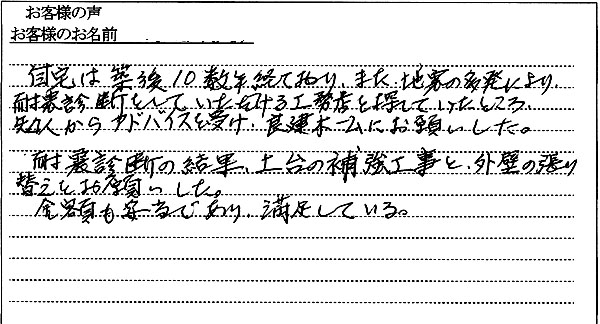 お客様の声
お客様のお名前
自宅は築後10数年経ており、また、地震の多発により、
耐震診断をしていただける工務店を探していたところ、
知人からアドバイスを受け、良建ホームにお願いした。
耐震診断の結果、土台の補強工事と、外壁の張り
替えをお願いした。
金額も妥当であり、満足している。